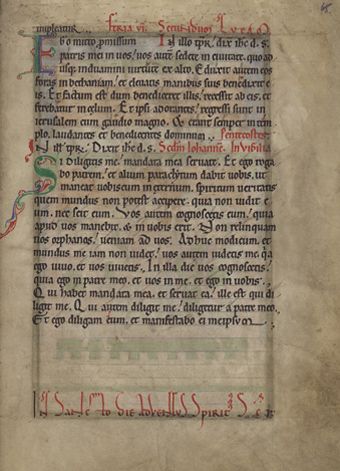 impleatur.
feria vi. Secundum Lucam
In illo tpr. dix ihc d. s.
Ego mitto pmissum
patris mei in vos. vos autē sedete in civitate. quo ad
usq; induamini virtutē ex alto. Eduxit autem eos
foras in bethaniam. et elevatis manibus suis benedixit e
is. Et factum est dum benediceret illis. recessit ab eis. et
ferebatur in celum. Et ipsi adorantes. regressi sunt in
ierusalem cum gaudio magno. & erant semper in tem
plo. laudantes et benedicentes dominum. pentecostes
In ill tpr. Dixit ihc d. s. Scdm Iohanne. In vigilia
Si diligitis me. mandata mea servate. Et ego roga
bo patrem. et alium paraclytum dabit vobis. ut
maneat vobiscum in eternum. spiritum veritatis
quem mundus non potest accipere. quia non videt e
um. nec scit eum. Vos autem cognoscetis eum. quia
apud vos manebit. & in vobis erit. Non relinquam
vos orphanos. veniam ad vos. Adhuc modicum. et
mundus me iam non videt. vos autem videtis me. qa
ego vivo. et vos vivetis. In illa die vos cognoscetis.
quia ego in patre meo. et vos in me. et ego in vobis.
Qui habet mandata mea. et servat ea. ille est qui di
ligit me. Qui autem diligit me. diligetur a patre meo.
Et ego diligam eum. et manifestabo ei meipsum.
In sancto die adventus spirit